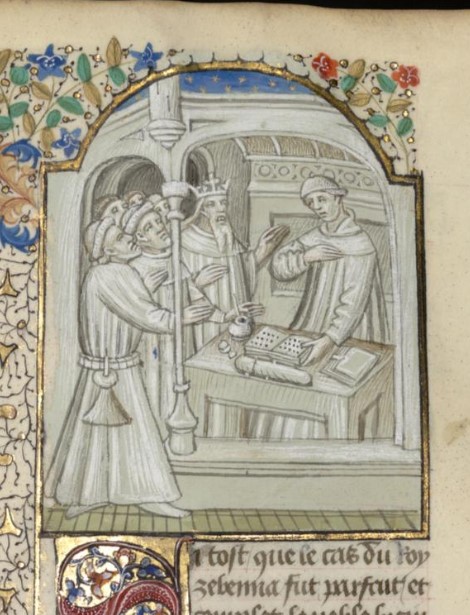 Si tost que le cas du roy
zebenna fut parfait et